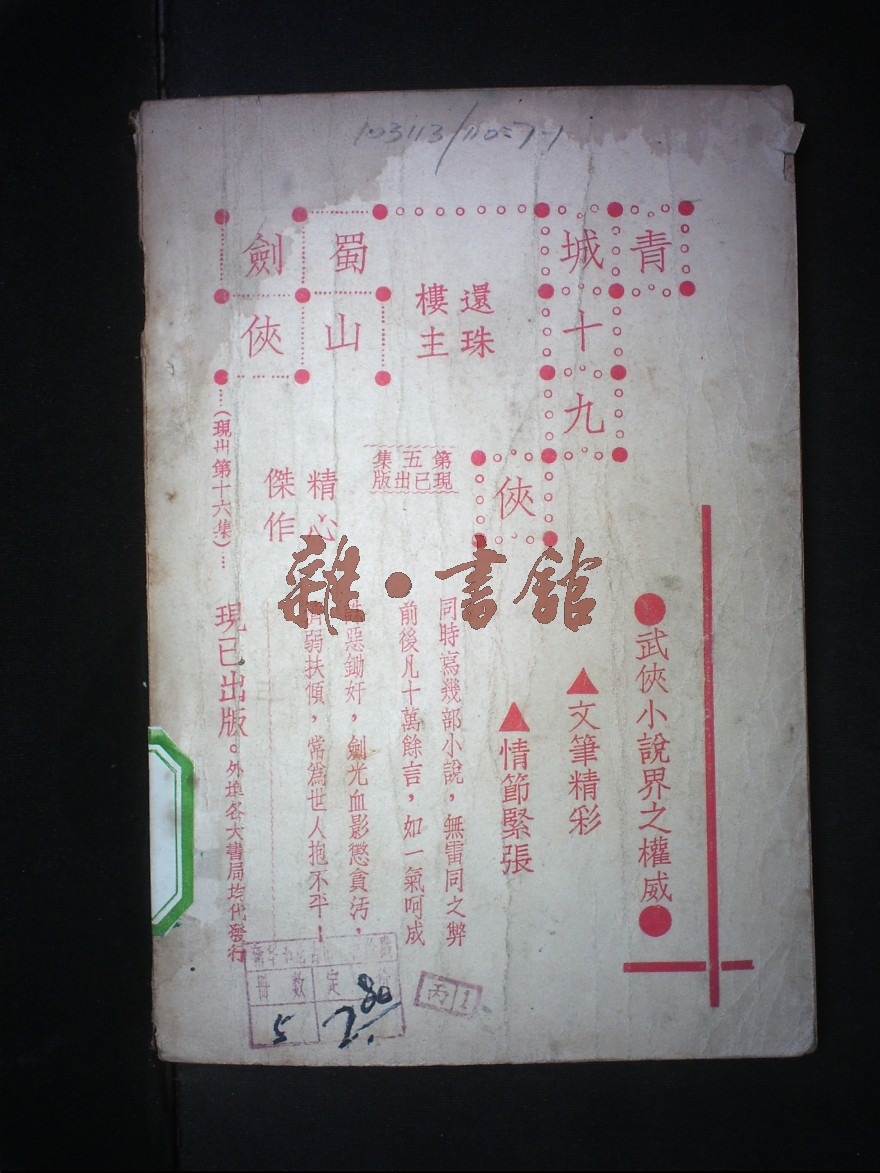 103113/110:7-1
●武俠小說界之權威●
▲文筆精彩
▲情節緊張
青城十九俠
第五集
現已出版
還珠
樓主
同時寫幾部小說，無雷同之弊
前後凡十萬餘言，如一氣呵成
惡鋤奸，劍光血影懲貪污，
弱扶傾，常爲世人抱不平！
精心
傑作
蜀山
劍俠
……(現出第十六集)…
現已出版。外埠各大書局均代發行
雜·書館
冊數 定
5
丙 1